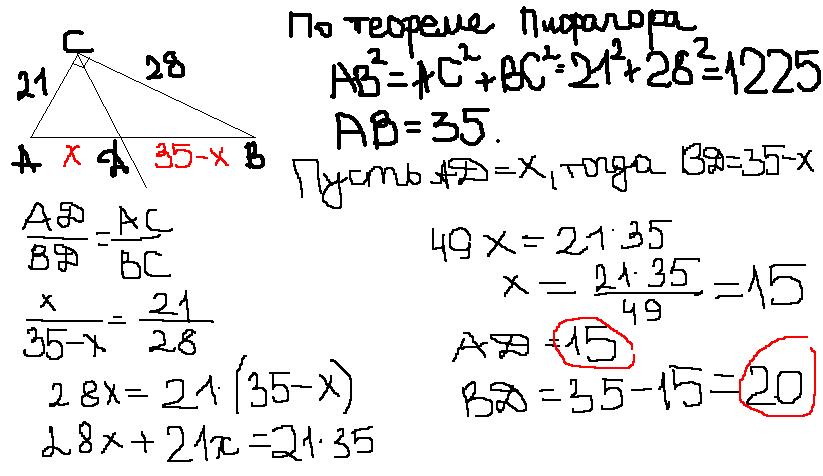 C
21
28
A x Д 35-x B
По теореме Пифагора
AB²=AC²+BC²=21²+28²=1225
AB=35.
Пусть AД=x, тогда BД=35-x
AД/BД=AC/BC
x/35-x=21/28
28x=21·(35-x)
28x+21x=21·35
49x=21·35
x=21·35/49=15
AД=15
BД=35-15=20